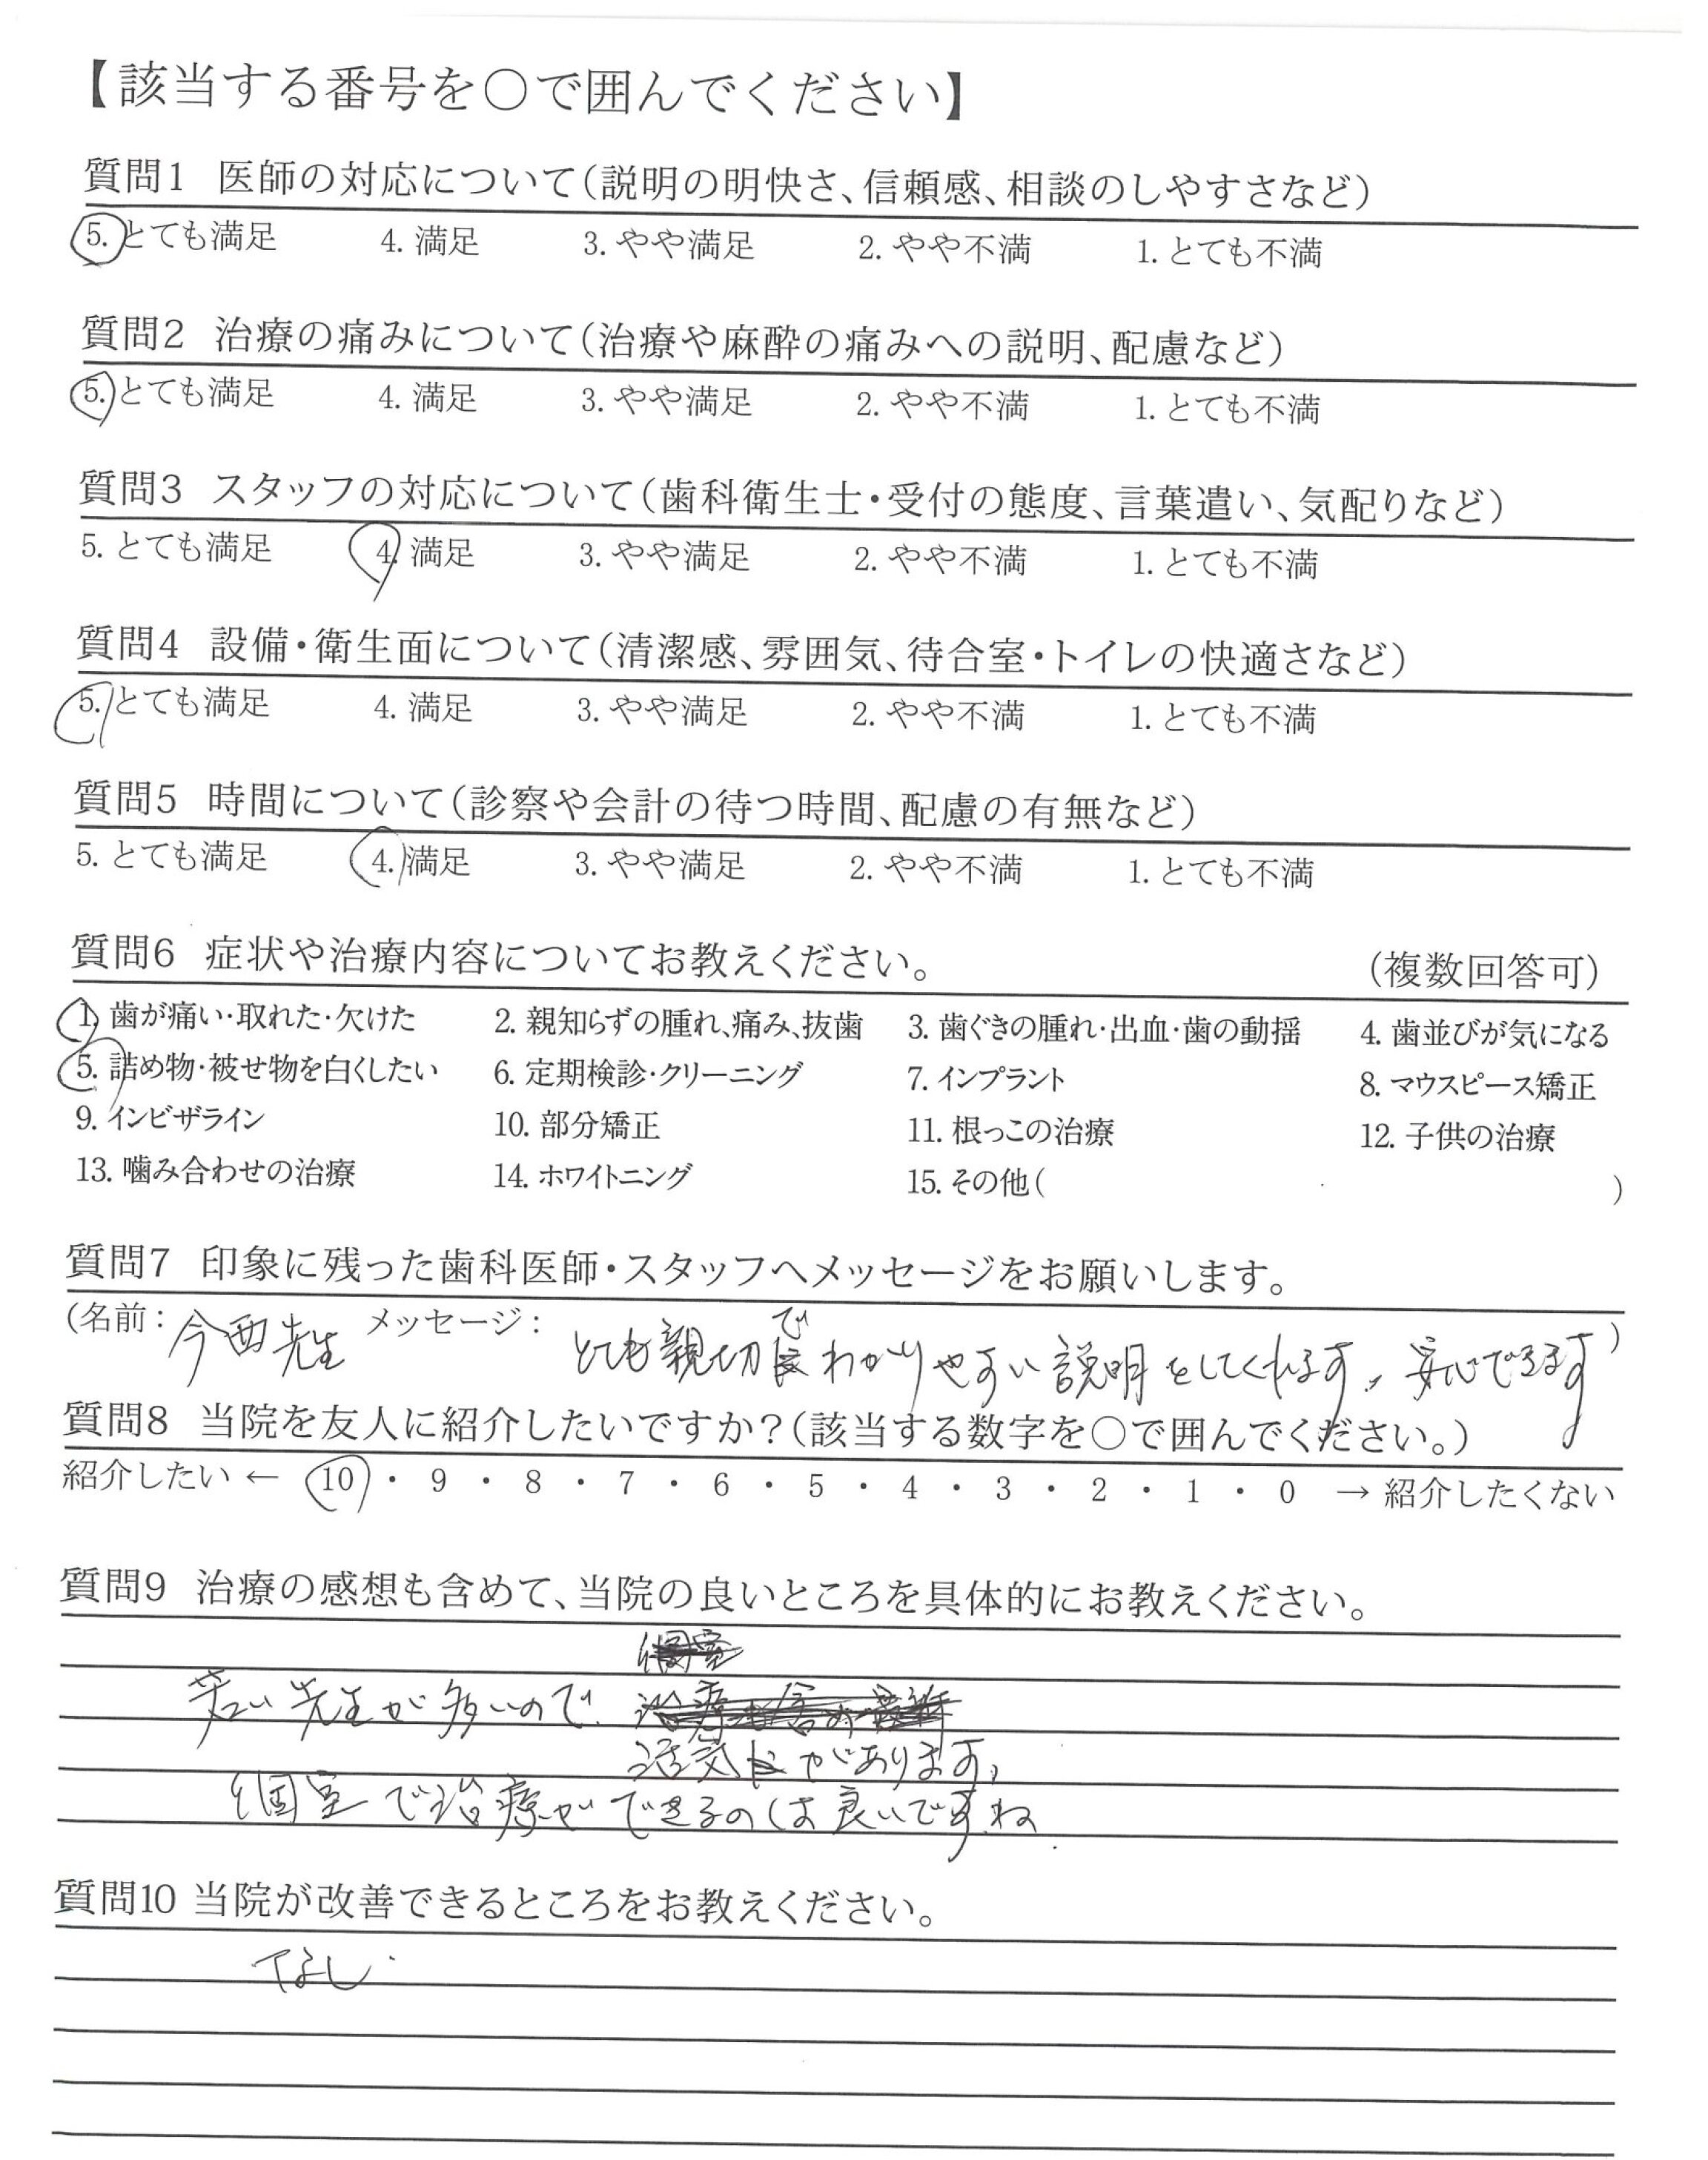 【該当する番号を〇で囲んでください】
質問1 医師の対応について(説明の明快さ、信頼感、相談のしやすさなど)
5. とても満足 4. 満足 3. やや満足 2. やや不満 1. とても不満
質問2 治療の痛みについて(治療や麻酔の痛みへの説明、配慮など)
5. とても満足 4. 満足 3. やや満足 2. やや不満 1. とても不満
質問3 スタッフの対応について(歯科衛生士・受付の態度、言葉遣い、気配りなど)
5. とても満足 4. 満足 3. やや満足 2. やや不満 1. とても不満
質問4 設備・衛生面について(清潔感、雰囲気、待合室・トイレの快適さなど)
5. とても満足 4. 満足 3. やや満足 2. やや不満 1. とても不満
質問5 時間について(診察や会計の待つ時間、配慮の有無など)
5. とても満足 4. 満足 3. やや満足 2. やや不満 1. とても不満
質問6 症状や治療内容についてお教えください。 (複数回答可)
1. 歯が痛い・取れた・欠けた 2. 親知らずの腫れ、痛み、抜歯 3. 歯ぐきの腫れ・出血・歯の動揺 4. 歯並びが気になる
5. 詰め物・被せ物を白くしたい 6. 定期検診・クリーニング 7. インプラント 8. マウスピース矯正
9. インビザライン 10. 部分矯正 11. 根っこの治療 12. 子供の治療
13. 噛み合わせの治療 14. ホワイトニング 15. その他( )
質問7 印象に残った歯科医師・スタッフへメッセージをお願いします。
(名前: 今西先生 メッセージ: とても親切でわかりやすい説明をしてくれます、安心できます)
質問8 当院を友人に紹介したいですか?(該当する数字を〇で囲んでください。)
紹介したい ← 10 ・ 9 ・ 8 ・ 7 ・ 6 ・ 5 ・ 4 ・ 3 ・ 2 ・ 1 ・ 0 → 紹介したくない
質問9 治療の感想も含めて、当院の良いところを具体的にお教えください。
個室
若い先生が多いので、
活気があります。
個室で治療ができるのは良いですね
質問10 当院が改善できるところをお教えください。
なし